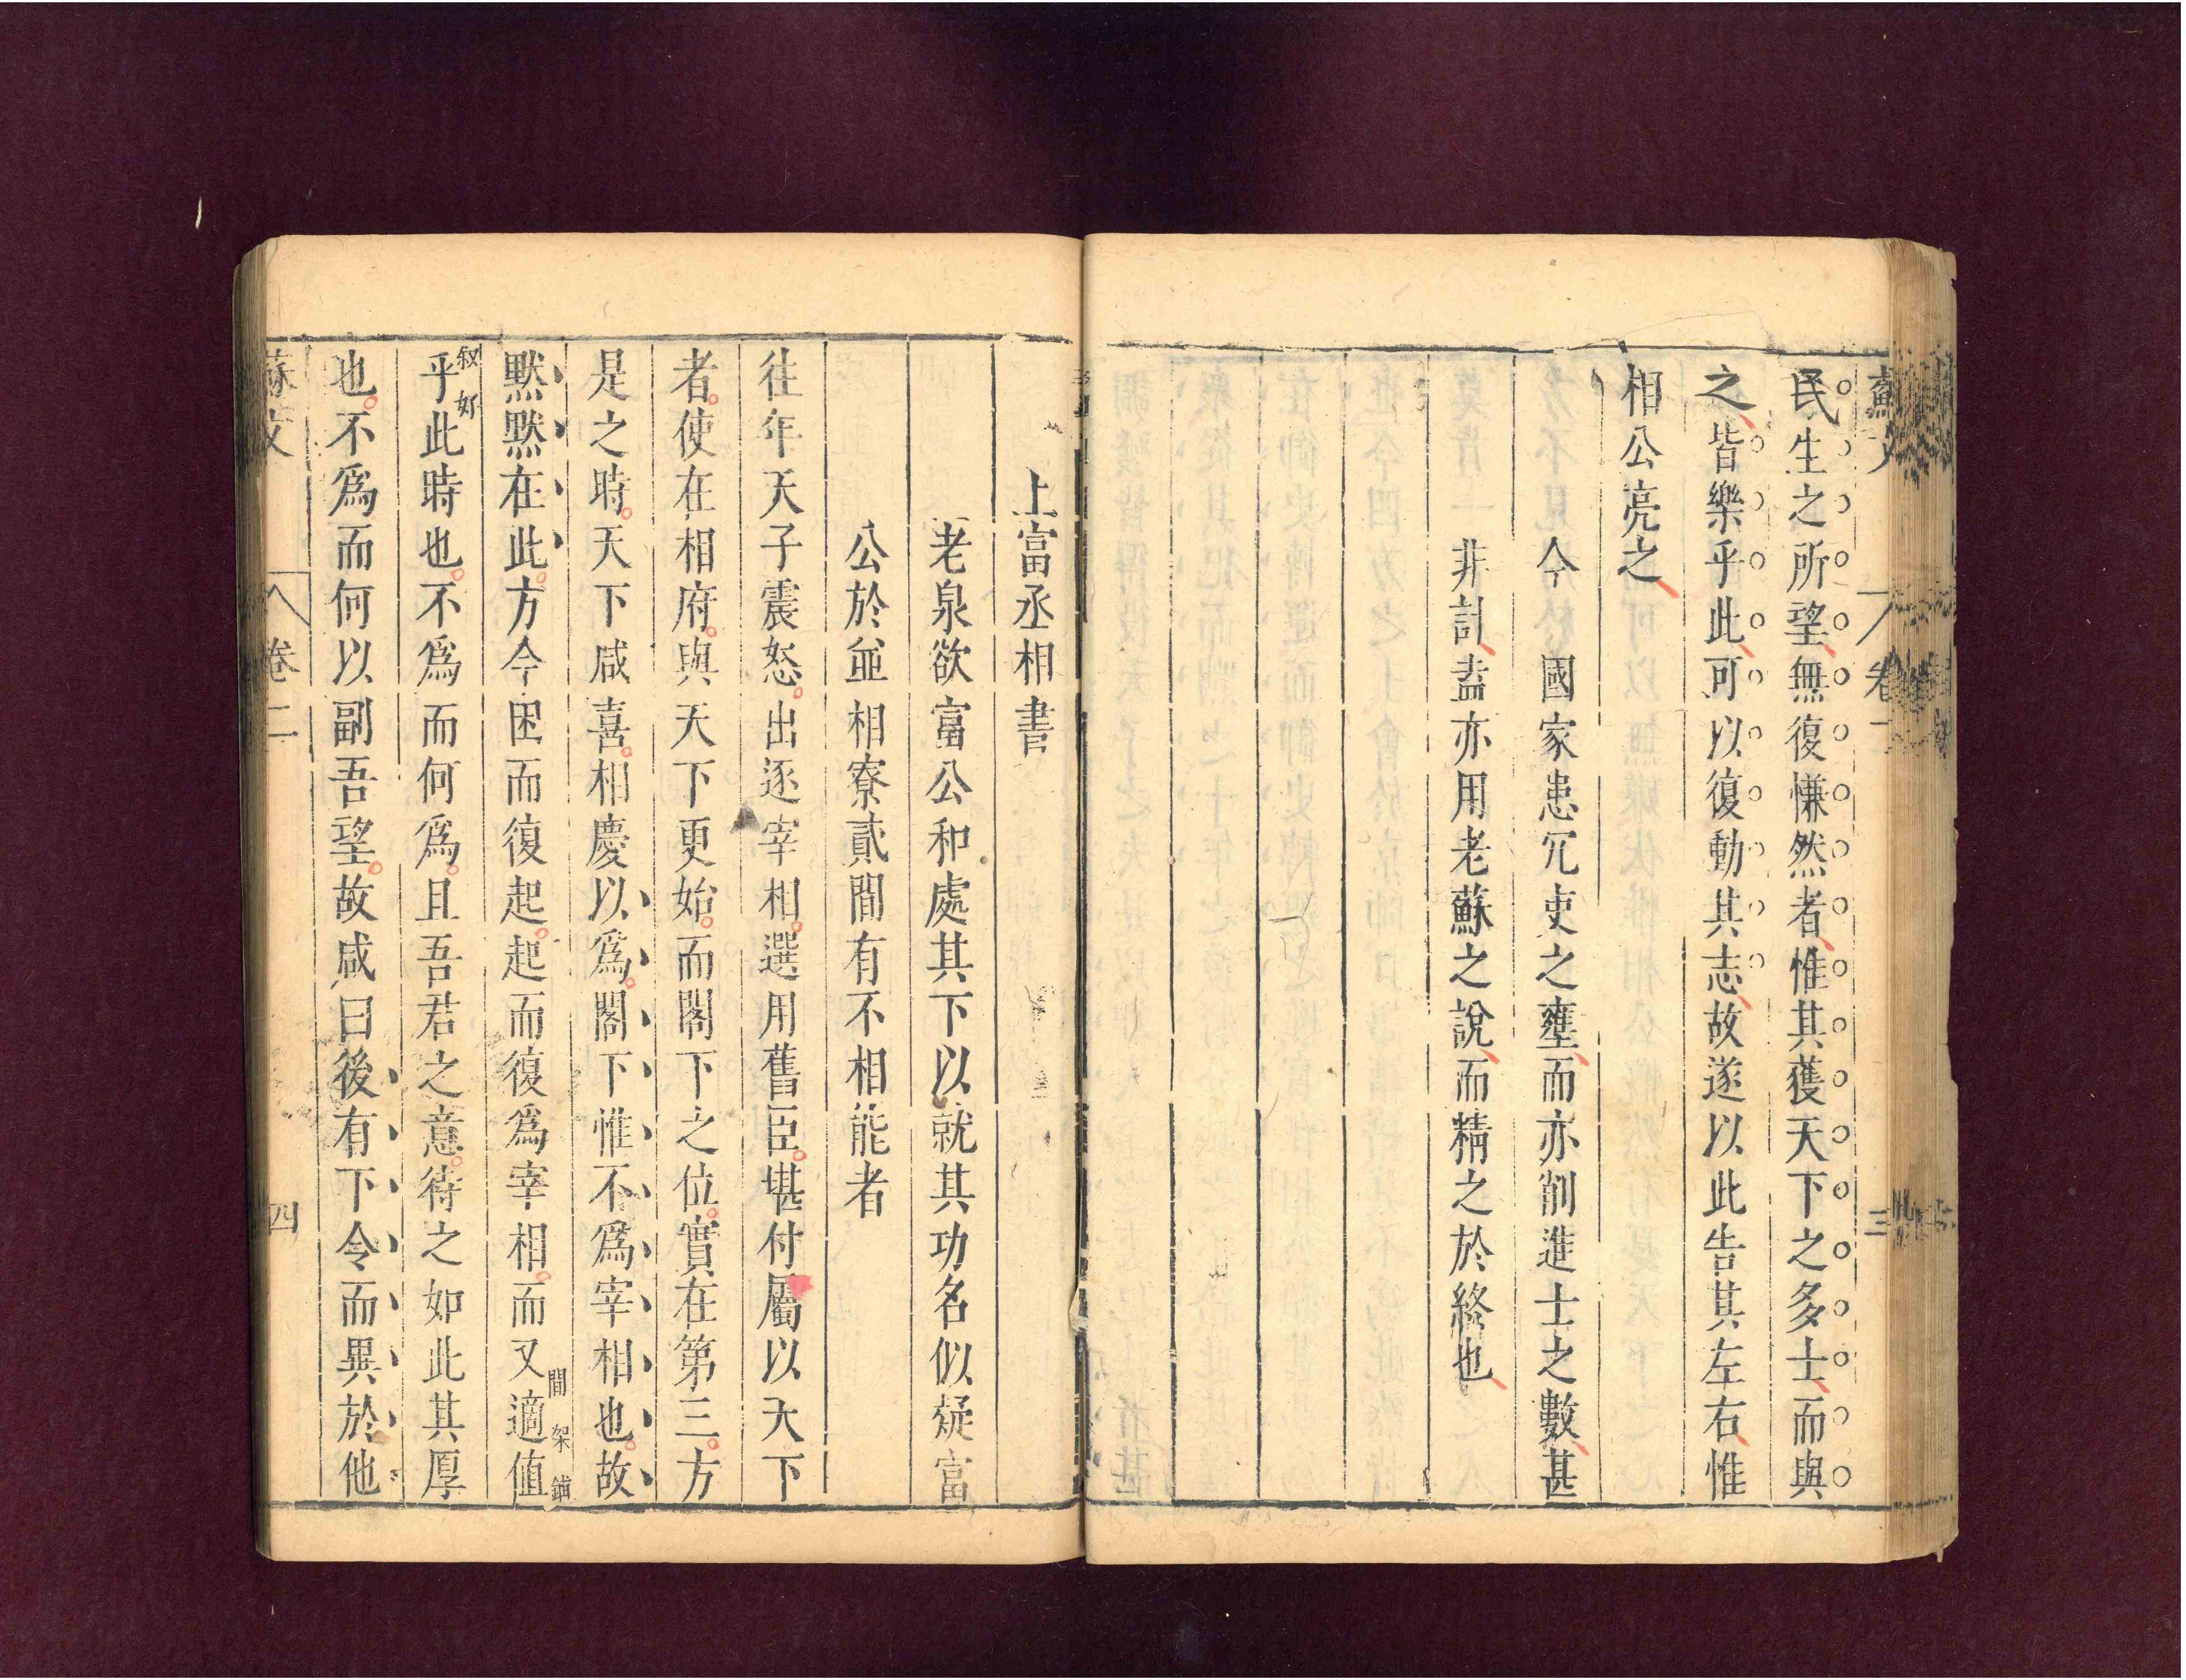 民生之所望無復慊然者惟其獲天下之多士而與
之皆樂乎此可以復動其志故遂以此告其左右惟
相公亮之
今　國家患冗吏之壅而亦削進士之數甚
非計葢亦用老蘇之說而精之於終也
上富丞相書
老泉欲富公和處其下以就其功名似疑富
公於並相寮貳間有不相能者
往年天子震怒出逐宰相選用舊臣堪付屬以天下
者使在相府與天下更始而閣下之位實在第三方
是之時天下咸喜相慶以爲閣下惟不爲宰相也故
默默在此方今困而復起起而復爲宰相而又適値
間架
乎此時也不爲而何爲且吾君之意待之如此其厚
叙好
也不爲而何以副吾望故咸曰後有下令而異於他
蘇文　卷二　四